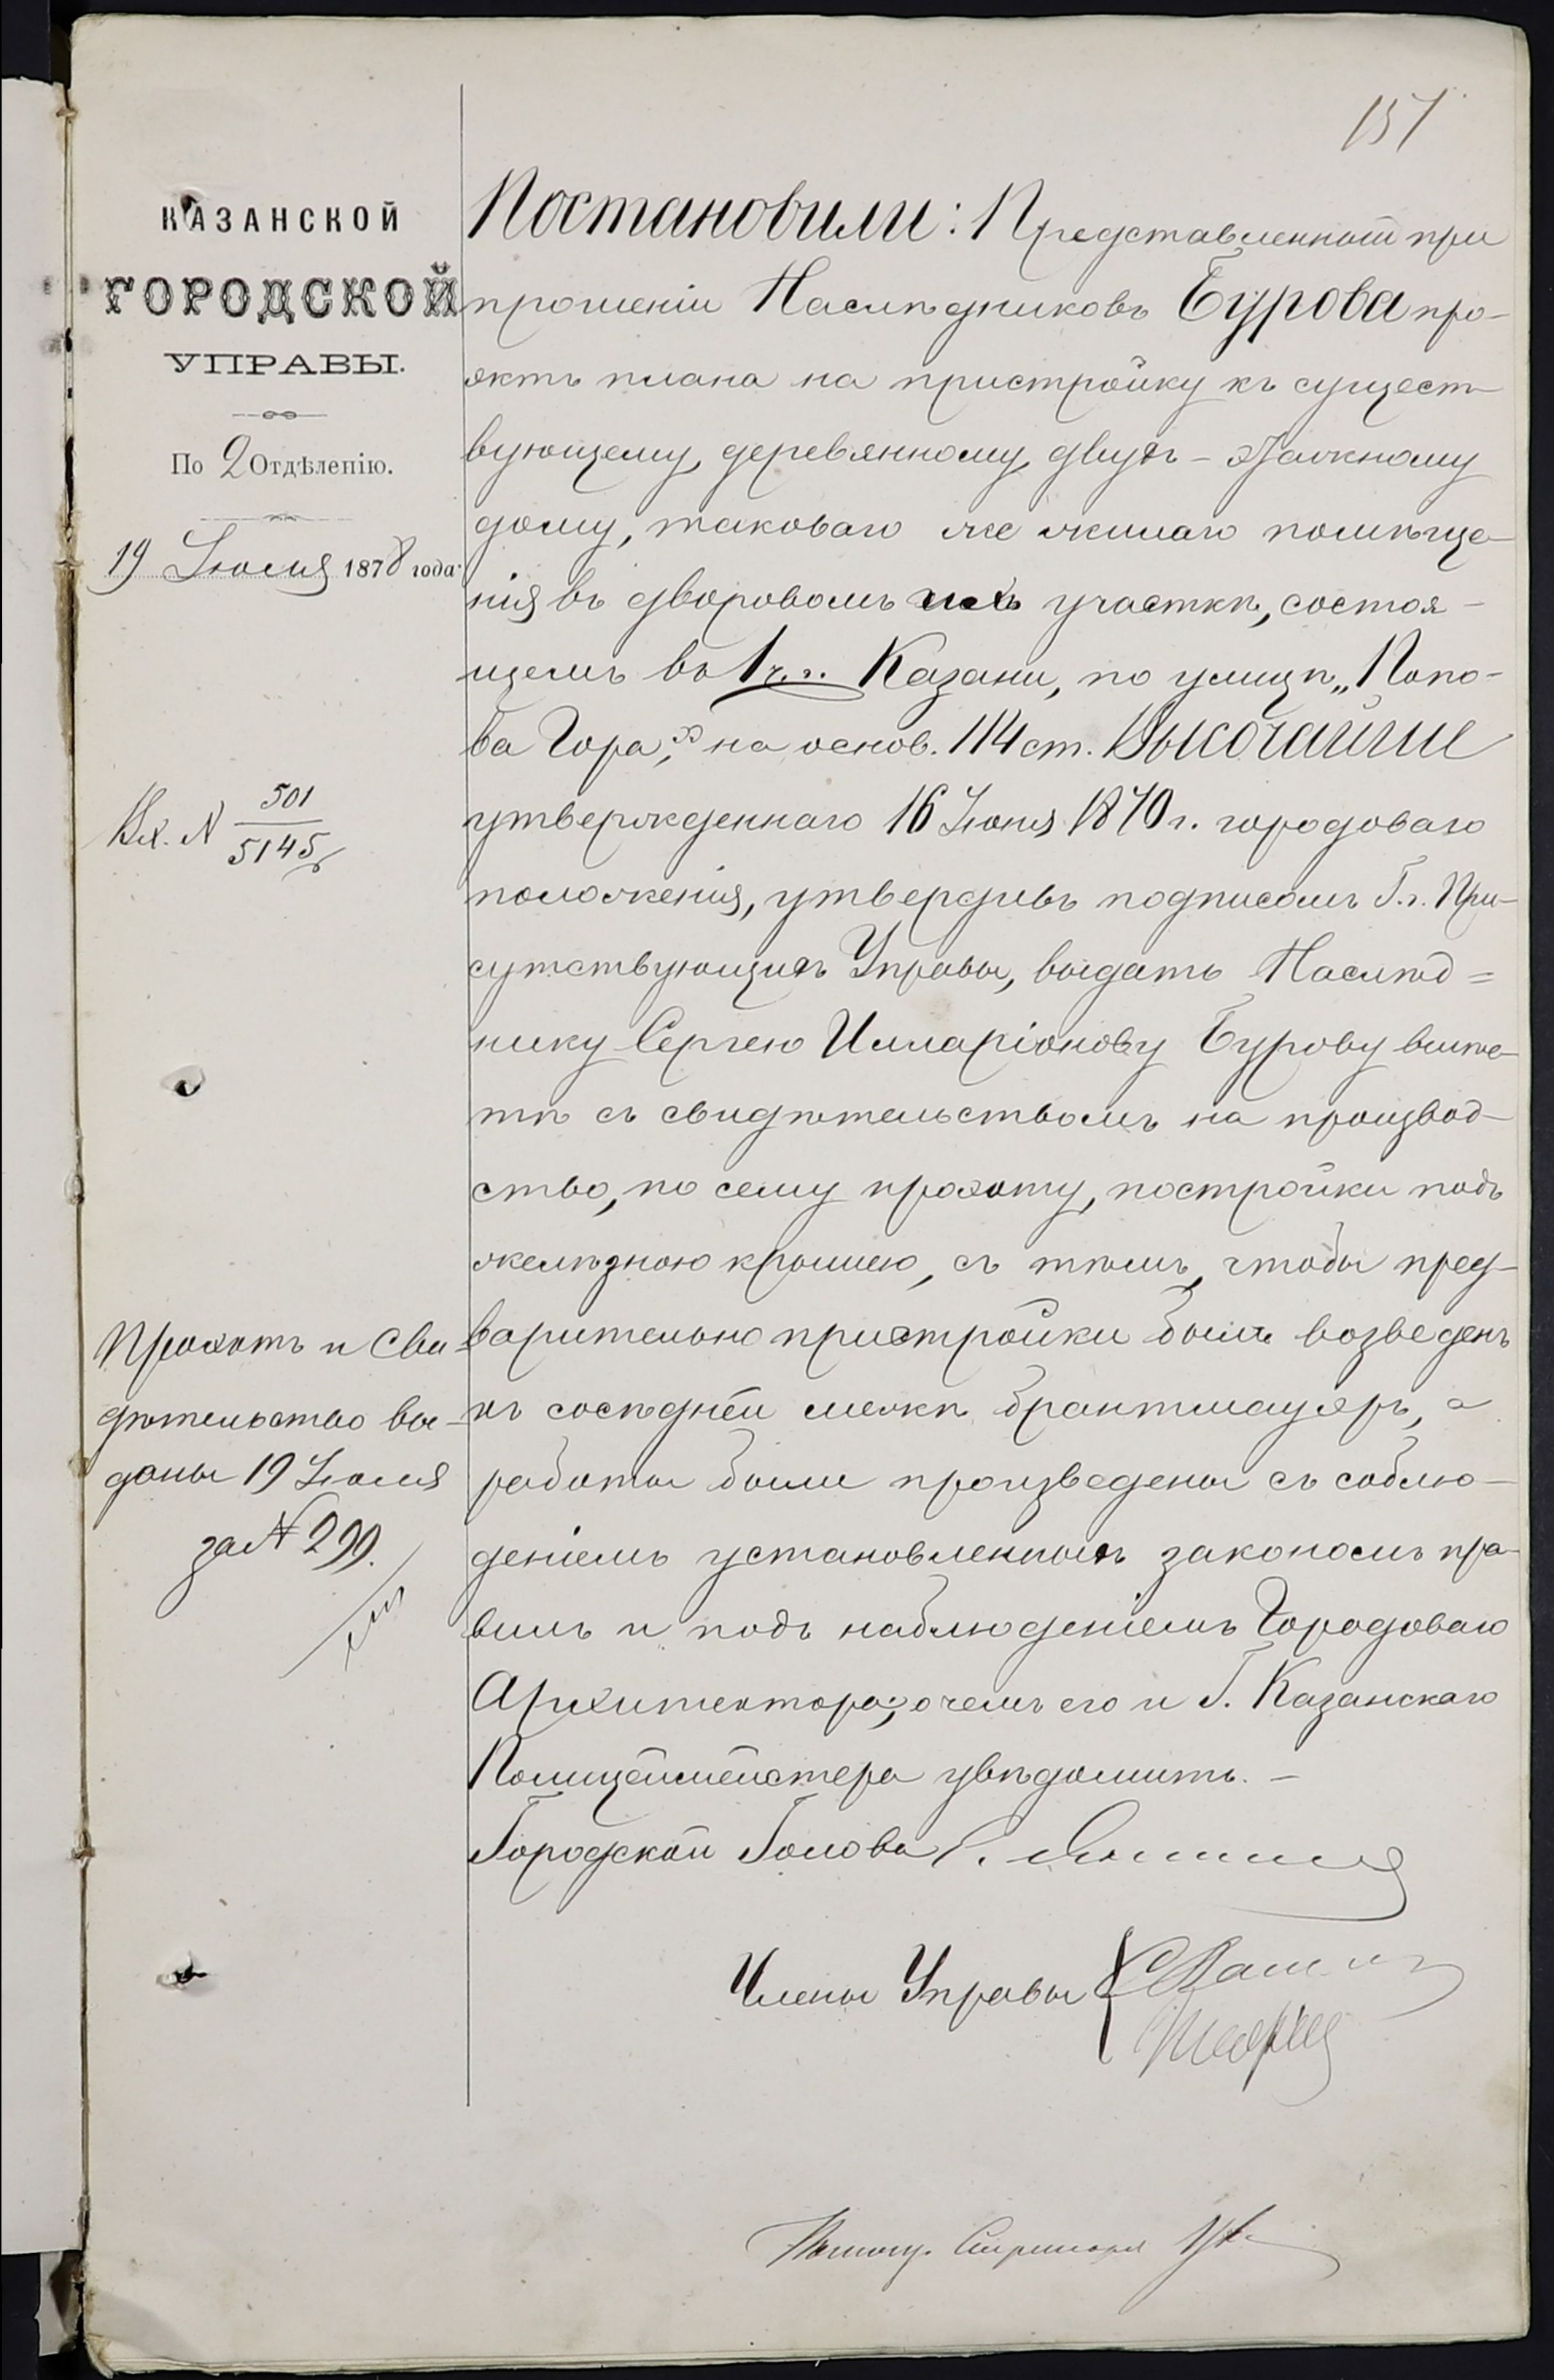 157
КАЗАНСКОЙ
ГОРОДСКОЙ
УПРАВЫ.
По 2 Отдѣленію.
19 Іюля 1878 года.
Вх. № 501/5145
Проэктъ и Сви-
дѣтельство вы-
даны 19 Іюля
за № 299.
Постановили: Представленный при
прошеніи Наслѣдниковъ Бурова про-
эктъ плана на пристройку къ сущест-
вующему, деревянному, двухъ-этажному
дому, таковаго же жилаго помѣще-
нія въ дворовомъ ихъ участкѣ, состоя-
щемъ въ 1 ч. г. Казани, по улицѣ „Попо-
ва Гора," на основ. 114 ст. Высочайше
утвержденнаго 16 Іюня 1870 г. городоваго
положенія, утвердивъ подписомъ Г.г. При-
сутствующихъ Управы, выдать Наслѣд=
нику Сергею Илларіонову Бурову вмѣс-
тѣ съ свидѣтельствомъ на производ-
ство, по сему проэкту, постройки подъ
желѣзною крышею, съ тѣмъ, чтобы пред-
варительно пристройки былъ возведенъ
къ сосѣдней межѣ брантмауэръ, а
работы были произведены съ соблю-
деніемъ установленныхъ закономъ пра-
вилъ и подъ наблюденіемъ Городоваго
Архитектора; о чемъ его и Г. Казанскаго
Полицеймейстера увѣдомить. -
Городской Голова
Члены Управы
Помощ. Секретаря